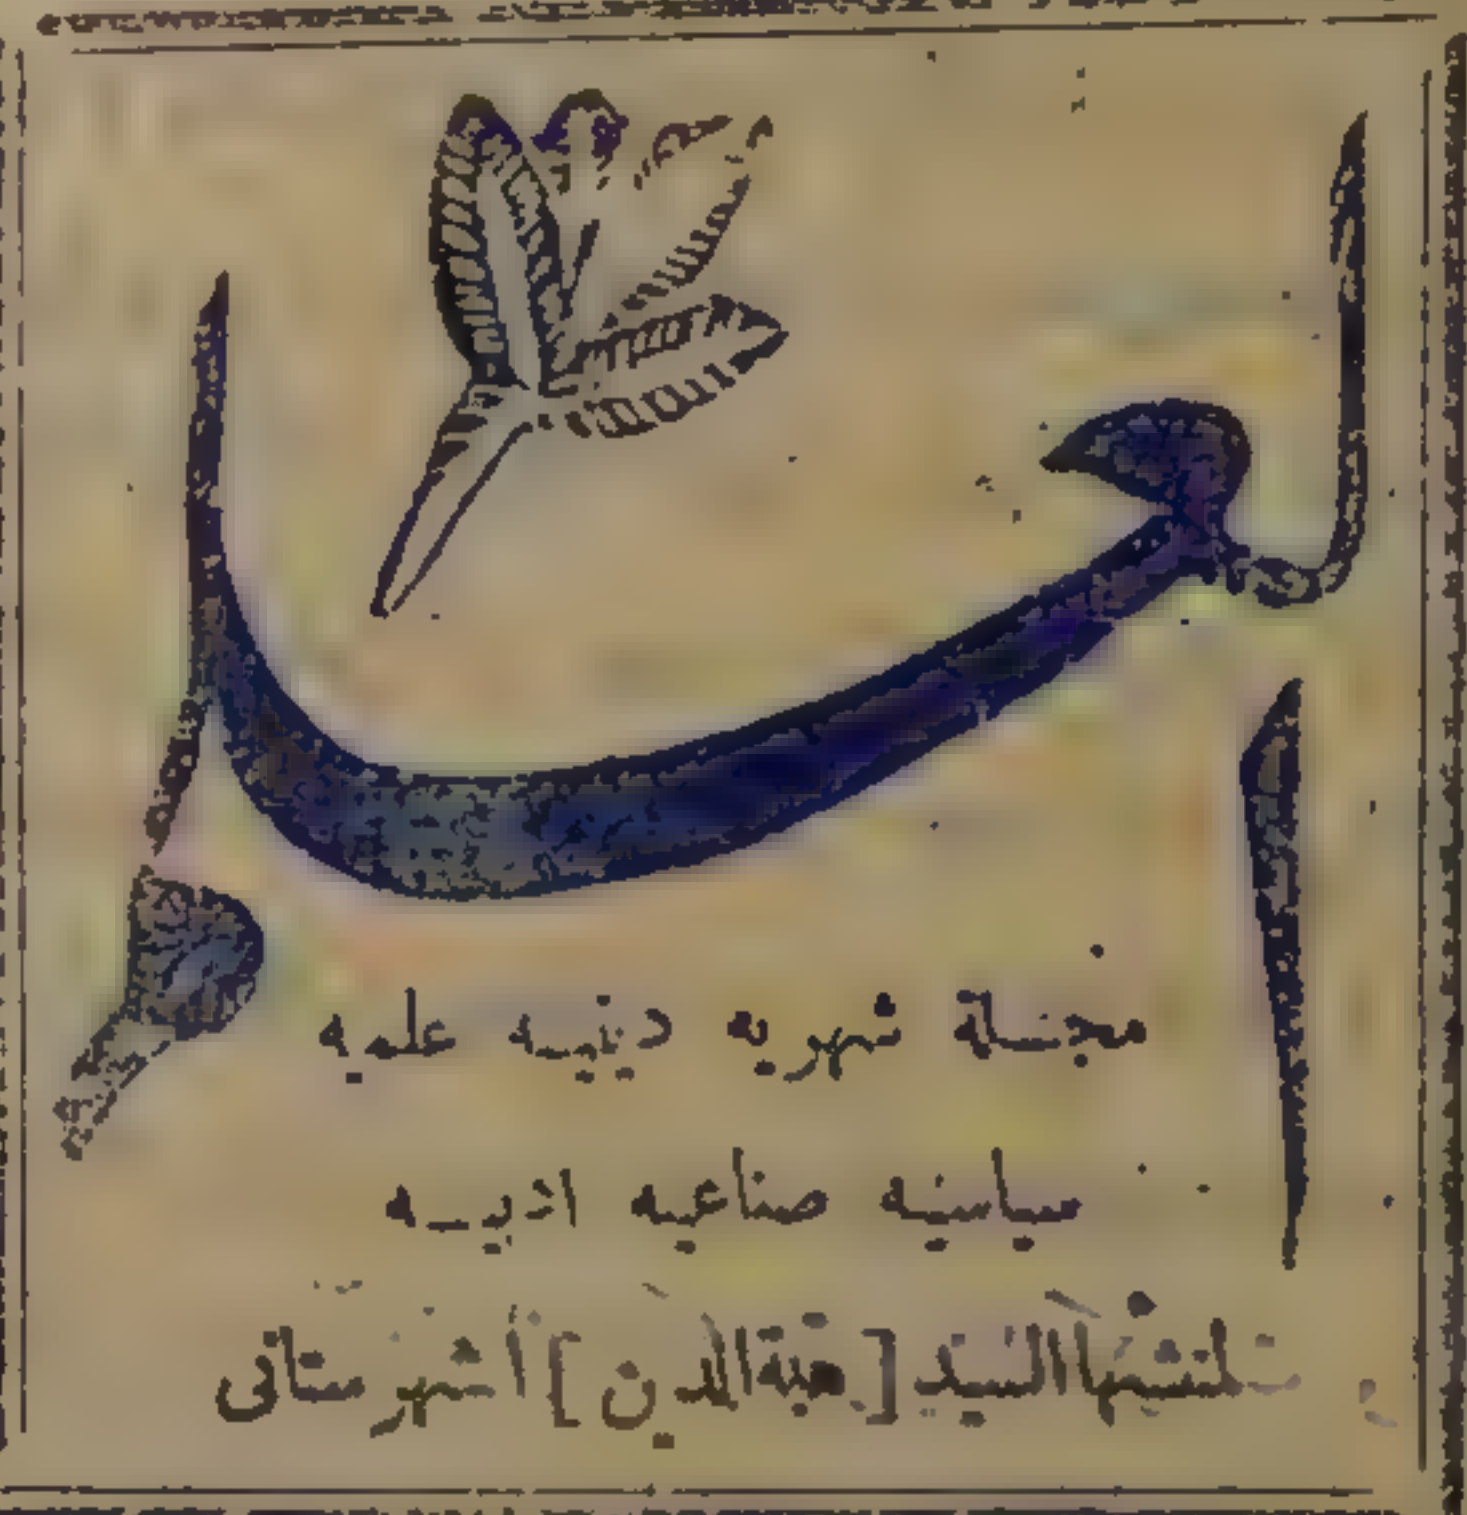 العلم
مجلة شهريه دينيه علميه
سياسيه صناعيه ادبيه
لمنشئها السيد [هبة الدين] الشهرستانى